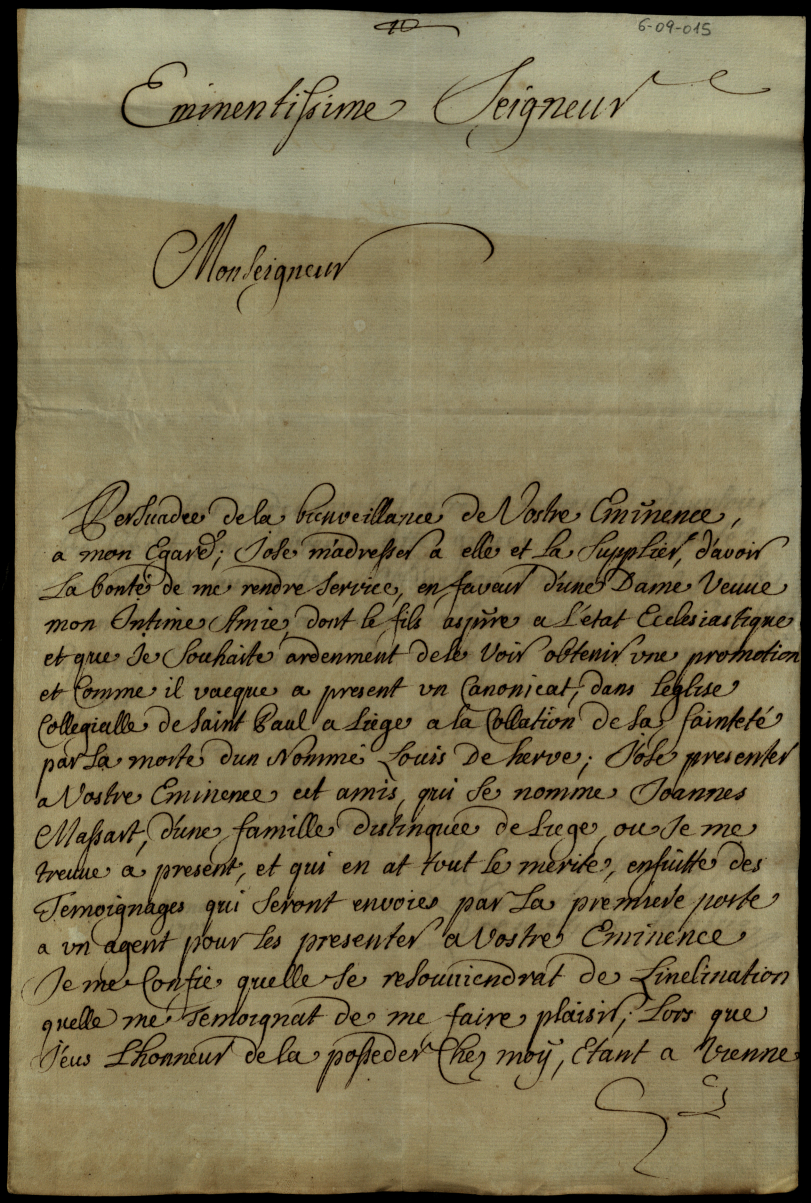 10
6-09-015
Eminentissime Seigneur
Monseigneur
Persuadee de la bienveillance de Vostre Eminence,
a mon Egard; J'ose m'adresser a elle et La Supplier, d'avoir
La bonté de me rendre Service, en faveur d'une Dame Veuue
mon Intime Amie, dont le fils aspire a L'état Ecclesiastique
et que Je Souhaite ardenment de le Voir obtenir vne promotion
et Comme il vacque a present vn Canonicat, dans L'eglise
Collegialle de Saint Paul a Liege a la Collation de Sa Sainteté
par La morte dun Nommé Louis De herve; J'ose presenter
a Vostre Eminence cet amis, qui Se nomme Joannes
Massart, d'une famille distinquée de Liege, ou Je me
treuue a present, et qui en at tout le merite, ensuitte des
Temoignages qui Seront envoies par La premiere poste
a vn agent pour Les presenter a Vostre Eminence
Je me Confie quelle Se resouuiendrat de Linclination
quelle me Temoignat de me faire plaisir, Lors que
J'eus Lhonneur de la posseder Chez moÿ, Etant a Vienne